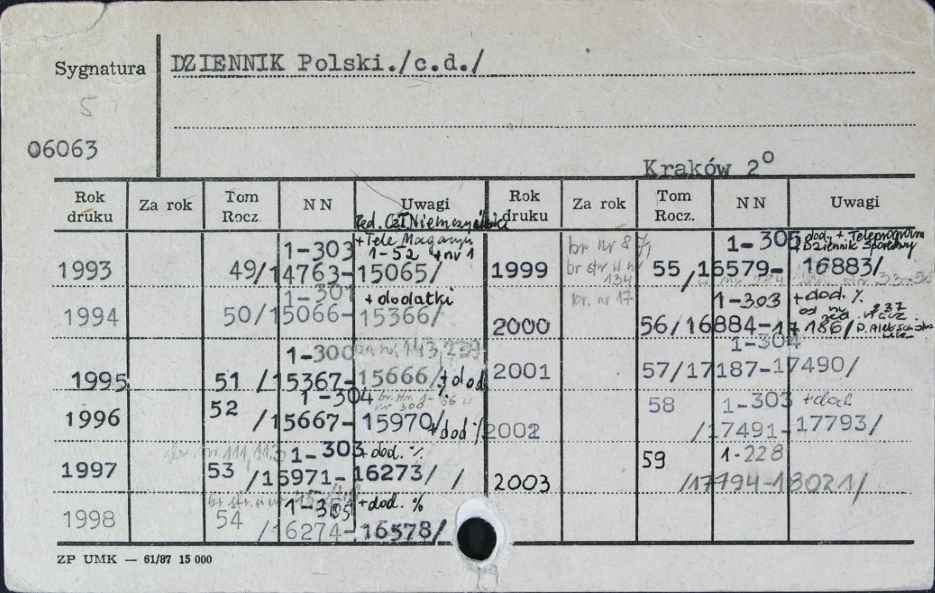 Sygnatura DZIENNIK Polski./c.d./
5
06063
Kraków 2°
Rok druku Za rok Tom Rocz. NN Uwagi Rok druku Za rok Tom Rocz. NN Uwagi
1-303 + Tele Magazyn 1-52 + nr 1
1993 49/14763-15065/
br nr 8
br str w nr 134
br. nr 17
1-305 dod. + Teleprogram + Dziennik Sportowy
1999 55/16579-16883/
1-301 + dodatki
1994 50/15066-15366/
1-303 + dod. %
2000 56/16884-17186/
1-300 143, 239
1995 51/15367-15666/ + dod
1-304
2001 57/17187-17490/
1-304
1996 52/15667-15970/ + dod %
1-303 + dod
2002 58/17491-17793/
1-303 + dod. %
1997 53/15971-16273/ /
1-228
2003 59/17794-18021/
1-305 + dod. %
1998 54/16274-16578/
ZP UMK — 61/87 15 000